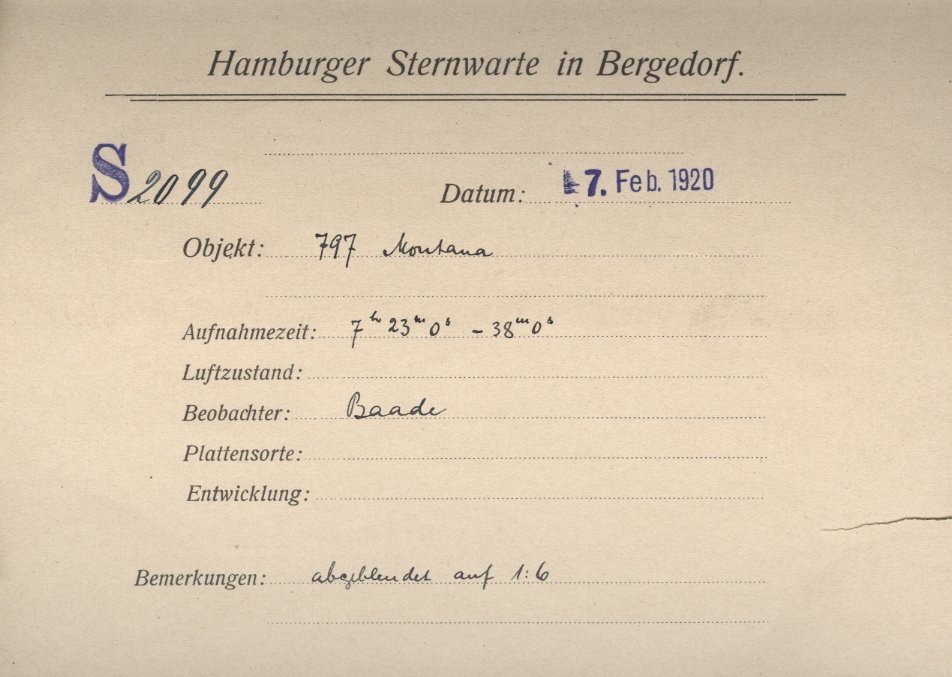 Hamburger Sternwarte in Bergedorf.
S 2099 Datum: 7. Feb. 1920
Objekt: 797 Montana
Aufnahmezeit: 7ʰ 23ᵐ 0ˢ – 38ᵐ 0ˢ
Luftzustand:
Beobachter: Baade
Plattensorte:
Entwicklung:
Bemerkungen: abgeblendet auf 1:6